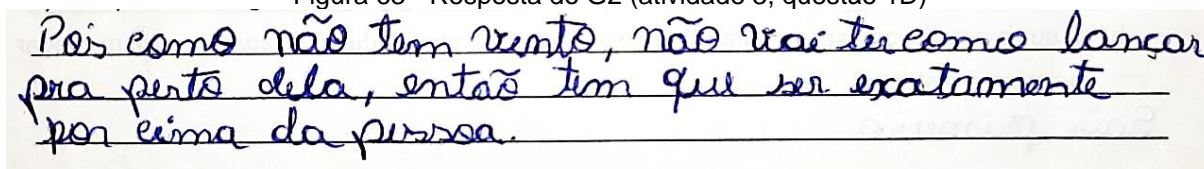 Figura 68 - Resposta do G2 (atividade 3, questão 1B)
Pois como não tem vento, não vai ter como lançar
pra perto dela, então tem que ser exatamente
por cima da pessoa.